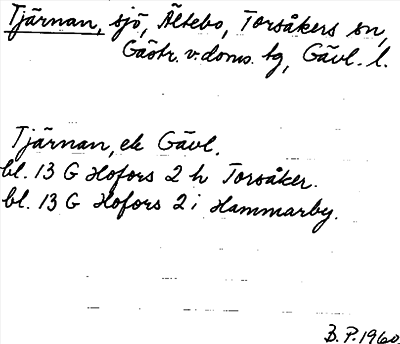 Tjärnan, sjö, Ältebo, Torsåkers sn,
Gästr. v. doms. tg, Gävl. l.
Tjärnan, ek Gävl.
bl. 13 G Hofors 2 h Torsåker.
bl. 13 G Hofors 2 i Hammarby.
B. P. 1960.